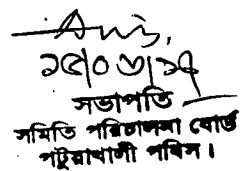 ১৫/০৩/১৭
সভাপতি
সমিতি পরিচালনা বোর্ড
পটুয়াখালী পবিস।